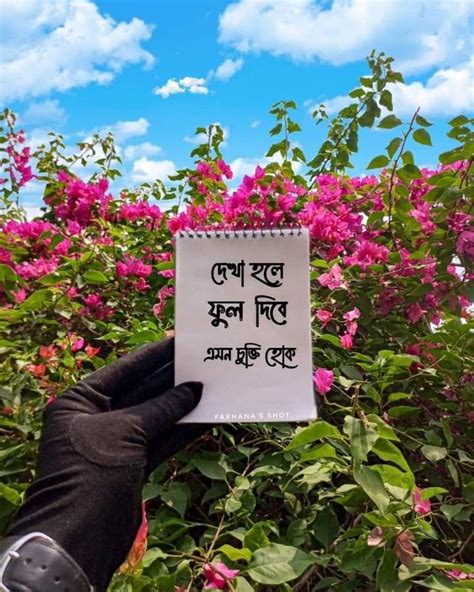 দেখা হলে
ফুল দিবে
এমন চুক্তি হোক
FARHANA'S SHOT